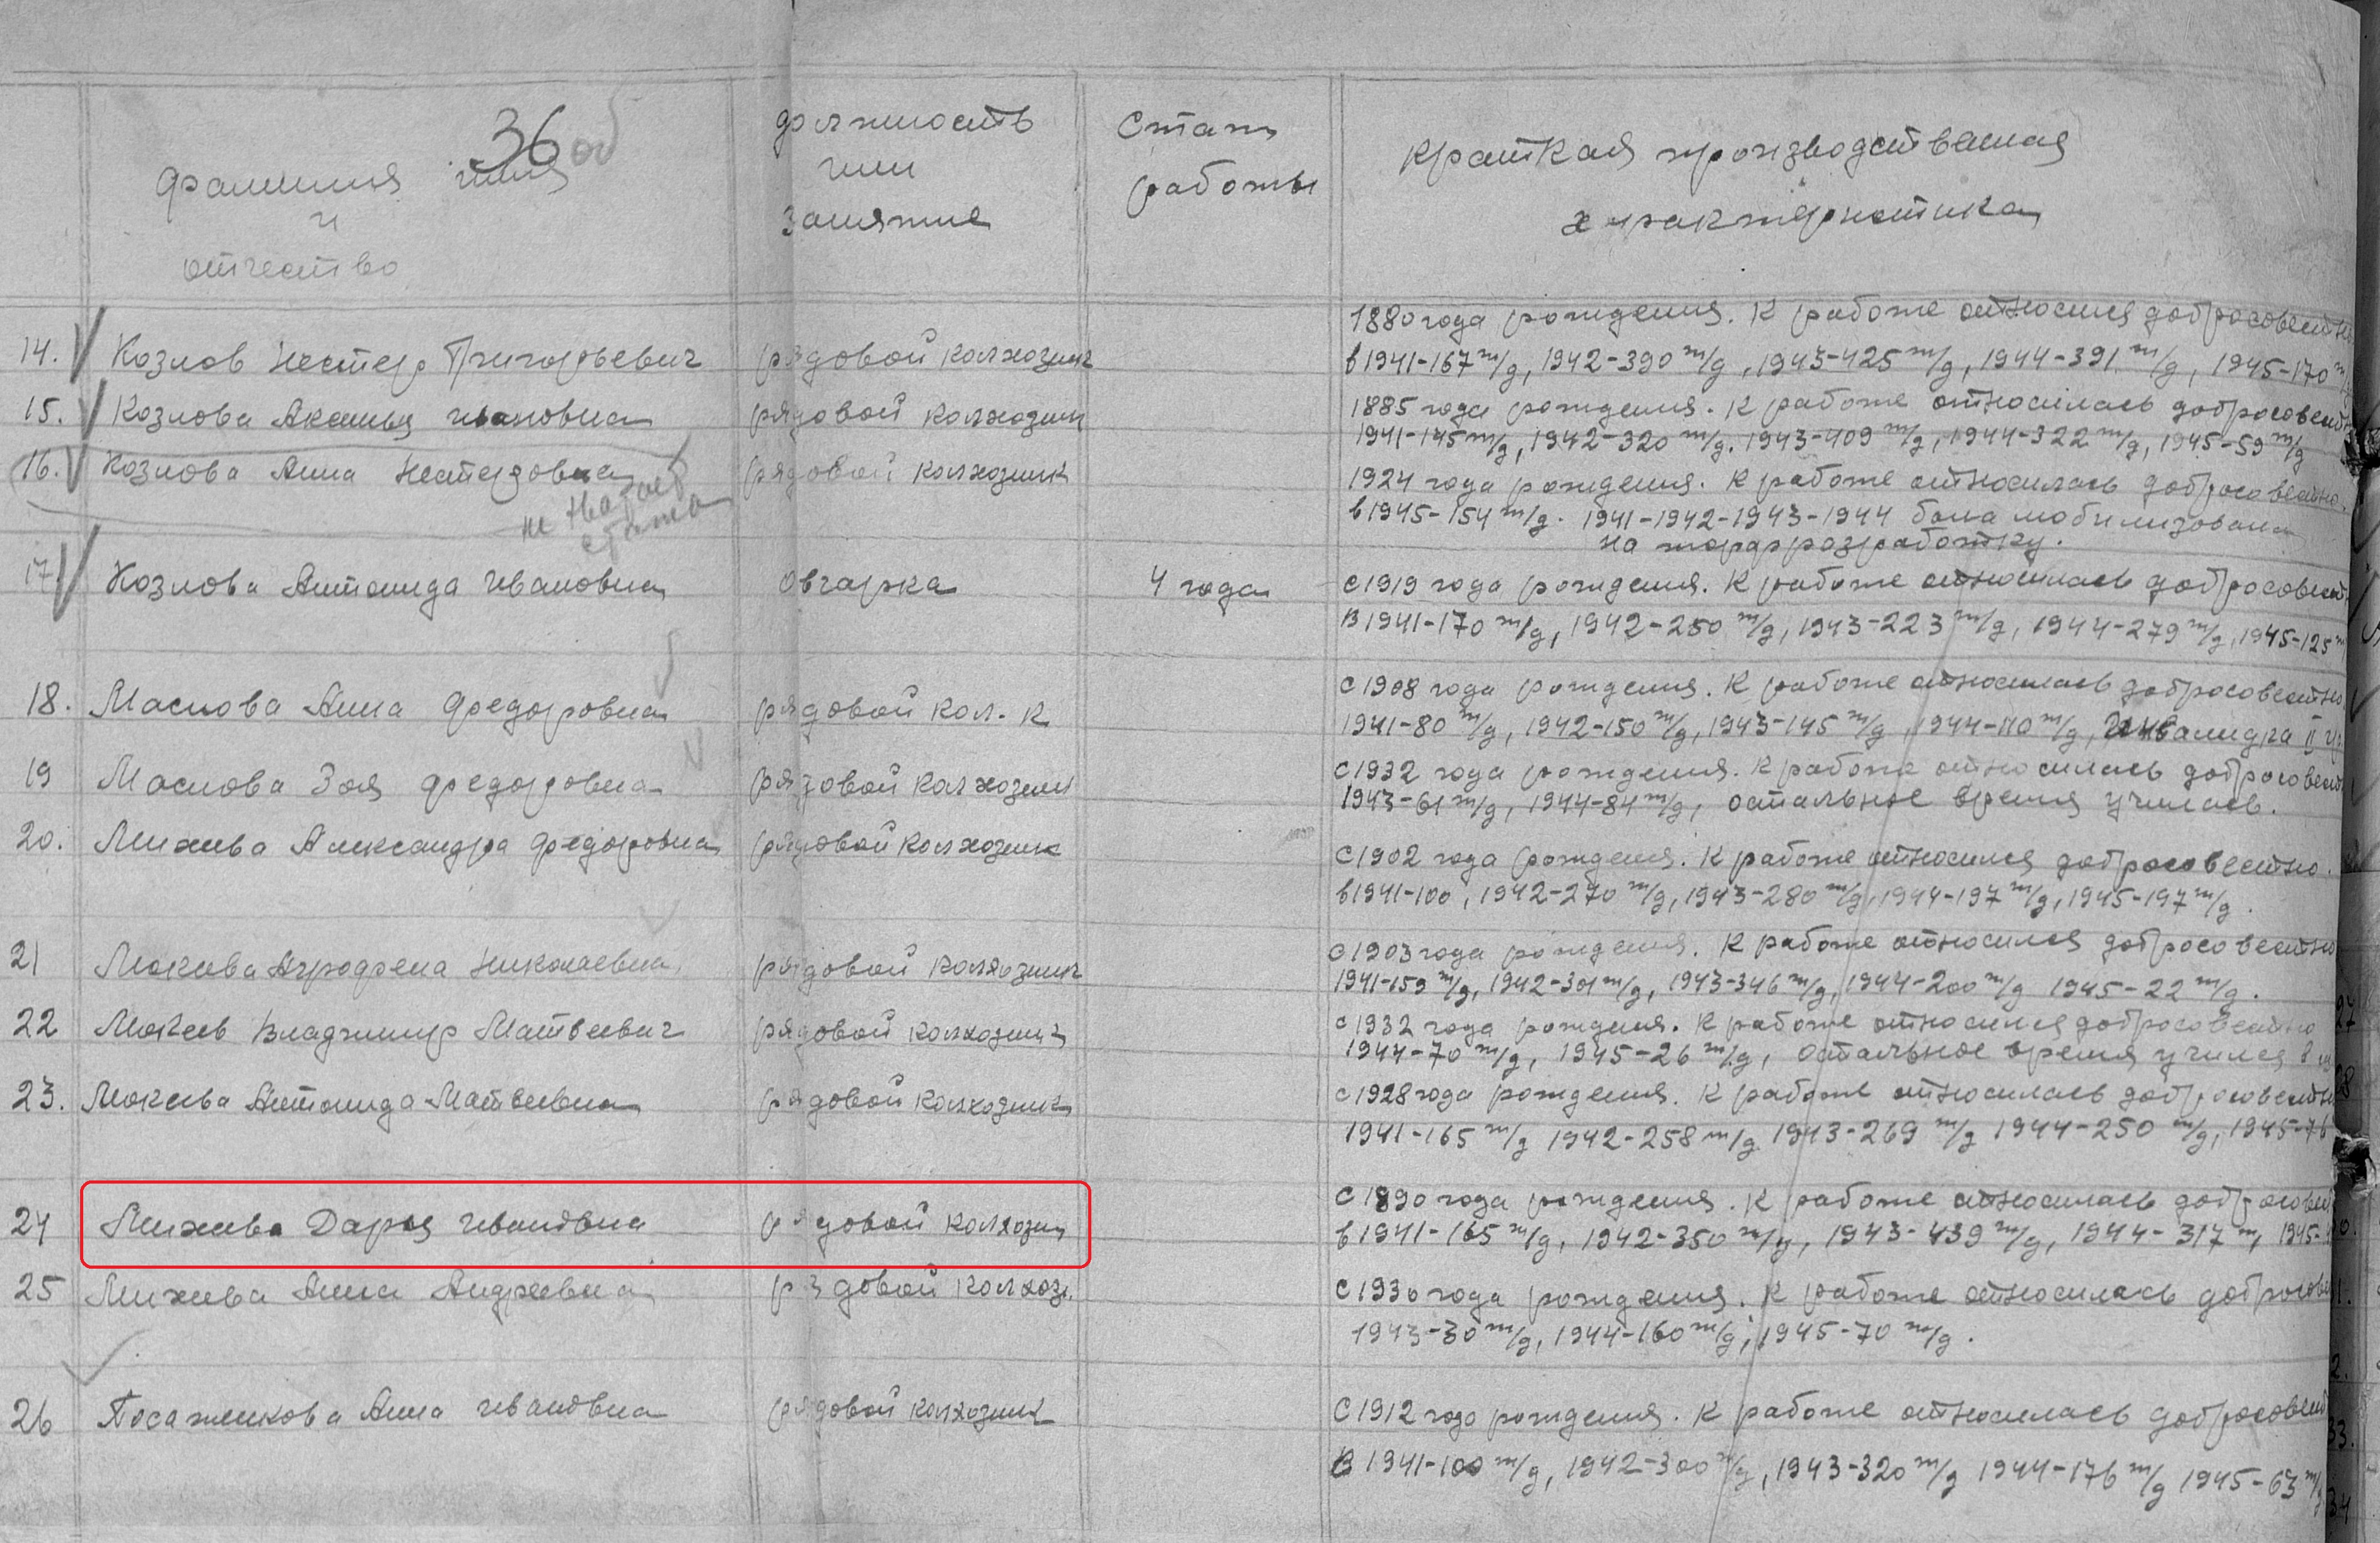 36 об
фамилия имя
и
отчество
должность
или
занятие
Стаж
работы
Краткая производственная
характеристика
14. Козлов Нестер Григорьевич рядовой колхозник 1880 года рождения. К работе относился добросовестно
в 1941-167 т/д, 1942-390 т/д, 1943-425 т/д, 1944-391 т/д, 1945-170 т/
15. Козлова Аксинья Ивановна рядовой колхозник 1885 года рождения. К работе относилась добросовестн
1941-145 т/д, 1942-320 т/д. 1943-409 т/д, 1944-322 т/д, 1945-59 т/д
16. Козлова Анна Нестеровна рядовой колхозник 1924 года рождения. К работе относилась добросовестно.
не
стажа
в 1945-154 т/д. 1941-1942-1943-1944 была мобилизована
на торфразработку.
17. Козлова Антонида Ивановна Овчарка 4 года с 1919 года рождения. К работе относилась добросовест
В 1941-170 т/д, 1942-250 т/д, 1943-223 т/д, 1944-279 т/д, 1945-125 т
18. Маслова Анна Федоровна рядовой кол-к с 1908 года рождения. К работе относилась добросовестно
1941-80 т/д, 1942-150 т/д, 1943-145 т/д, 1944-110 т/д, Инвалидра II гр
19 Маслова Зоя Федоровна рядовой колхозник с 1932 года рождения. К работе относилась добросовест
1943-61 т/д, 1944-84 т/д, остальное время училась.
20. Михеева Александра Федоровна рядовой колхозник с 1902 года рождения. К работе относился добросовестно.
в 1941-100, 1942-270 т/д, 1943-280 т/д, 1944-197 т/д, 1945-197 т/д.
21 Мокеева Агрофена Николаевна рядовой колхозник с 1903 года рождения. К работе относился добросовестно
1941-159 т/д, 1942-301 т/д, 1943-346 т/д, 1944-200 т/д 1945-22 т/д.
22 Мокеев Владимир Матвеевич рядовой колхозник с 1932 года рождения. К работе относился добросовестно
1944-70 т/д, 1945-26 т/д, остальное время учился в ш
23. Мокеева Антонида Матвеевна рядовой колхозник с 1928 года рождения. К работе относилась добросовестн
1941-165 т/д 1942-258 т/д 1943-269 т/д 1944-250 т/д, 1945-76
24 Михеева Дарья Ивановна рядовой колхозн с 1890 года рождения. К работе относилась добросовес
в 1941-165 т/д, 1942-350 т/д, 1943-439 т/д, 1944-317 т, 1945-
25 Михеева Анна Андреевна рядовой колхоз. с 1930 года рождения. К работе относилась добросове
1943-30 т/д, 1944-160 т/д, 1945-70 т/д.
26 Посаженкова Анна Ивановна рядовой колхозник С 1912 года рождения. К работе относилась добросовест
В 1941-100 т/д, 1942-300 т/д, 1943-320 т/д 1944-176 т/д 1945-63 т/д